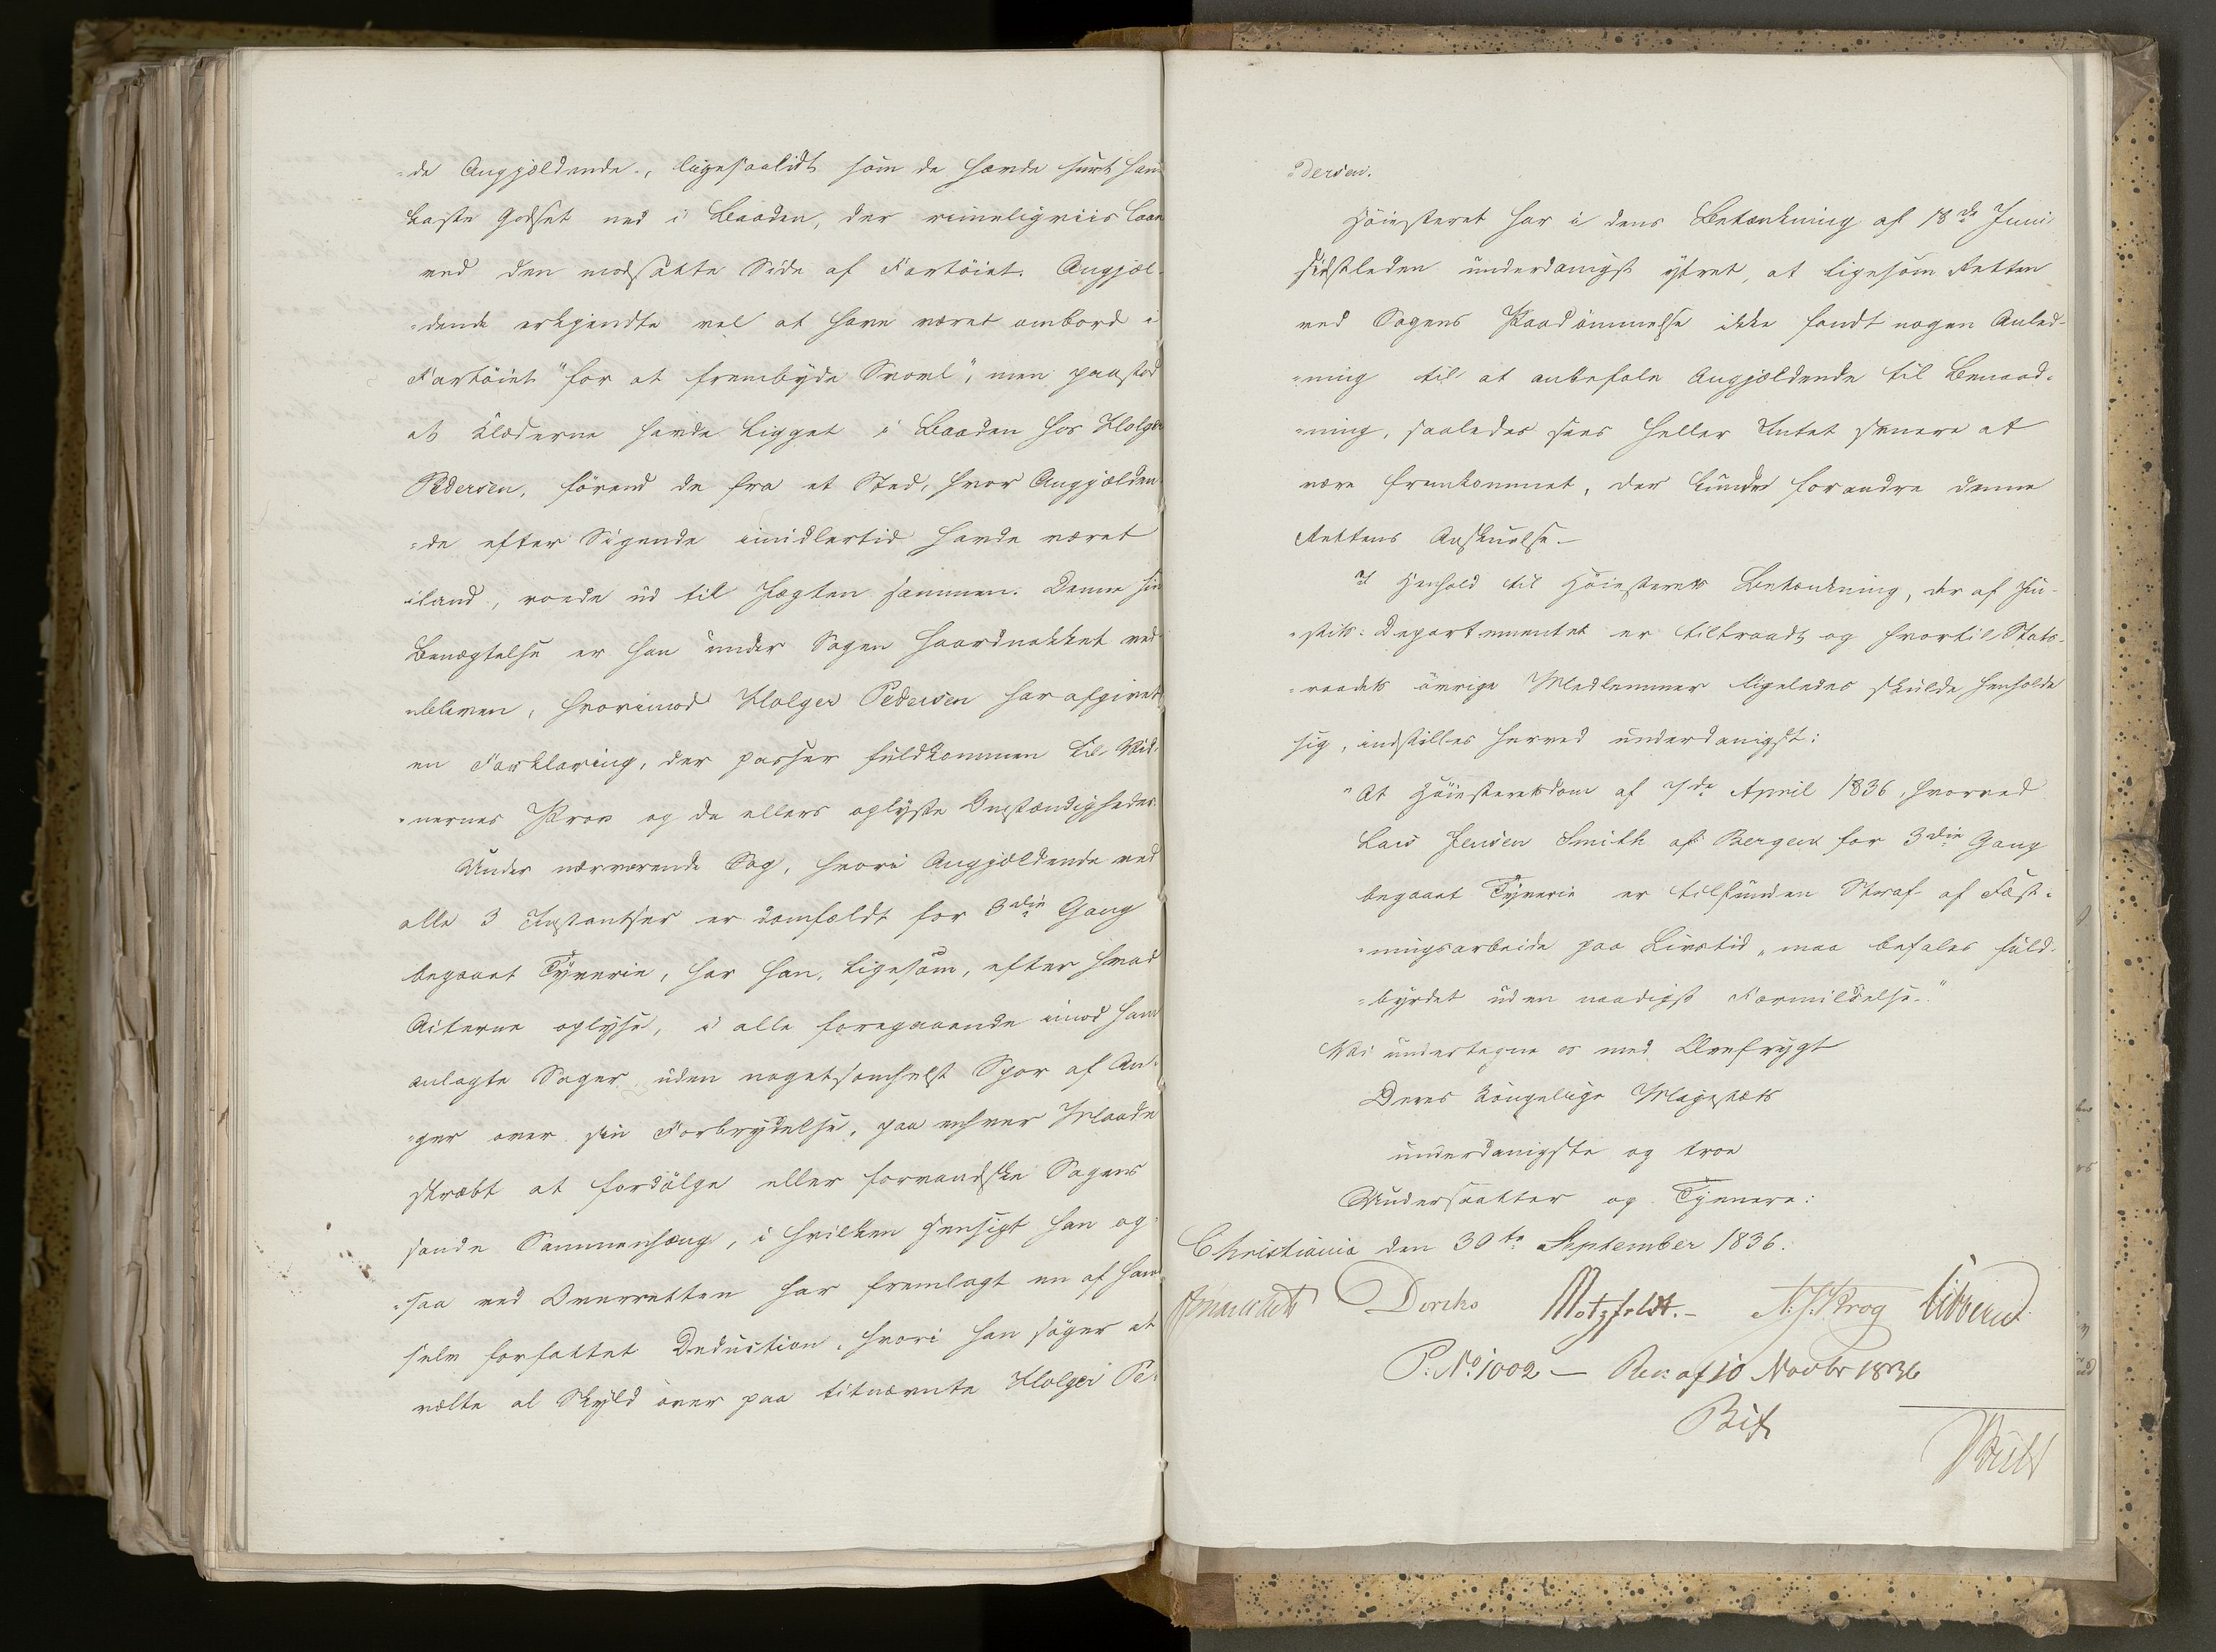 -de Angjældende, ligesaalidt som de havde hørt ham
kaste Godset ned i Baaden, der rimeligviis laae
ved den modsatte Side af Fartöiet. Angjæl-
-dende erkjendte vel at have været ombord i
Fartöiet "for at frembyde Svovl", men paastod
at Klæderne havde ligget i Baaden hos Holger
Pedersen, förend de fra et Sted, hvor Angjælden-
-de efter Sigende imidlertid havde været
iland, roede ud til Jægten sammen. Denne sin
Benægtelse er han under Sagen haardnakket ved-
-bleven, hvorimod Holger Pedersen har afgivet
en Forklaring, der passer fuldkommen til Vid-
-nernes Prov og de ellers oplyste Omstændigheder.
Under nærværende Sag, hvori Angjældende ved
alle 3 Instantser er domfældt for 3die Gang
begaaet Tyverie, har han, ligesom, efter hvad
Acterne oplyse, i alle foregaaende imod ham
anlagte Sager uden nogetsomhelst Spor af An-
-ger over sin Forbrydelse, paa enhver Maade
stræbt at fordölge eller forvandske Sagens
sande Sammenhæng, i hvilken Hensigt han og-
-saa ved Overretten har fremlagt en af ham
selv forfattet Deduction, hvori han söger at
vælte al Skyld over paa titnævnte Holger Pe-
-dersen.
Höiesteret har i dens Betænkning af 18de Juni
sidstleden underdanigst yttret, at ligesom Retten
ved Sagens Paadömmelse ikke fandt nogen Anled-
-ning til at anbefale Angjældende til Benaad-
-ning, saaledes sees heller Intet senere at
være fremkommet, der kunde forandre denne
Rettens Anskuelse.-
I Henhold til Höiesterets Betænkning, der af Ju-
-stits: Departementet er tiltraadt og hvortil Stats-
-raadets övrige Medlemmer ligeledes skulde henholde
sig, indstilles herved underdanigst:
"At Höiesteretsdom af 7de April 1836, hvorved
Lars Jensen Smith af Bergen for 3die Gang
begaaet Tyverie er tilfunden Straf af Fæst-
-ningsarbeide paa Livstid, maa befales fuld-
-byrdet uden naadigst Formildelse."
Vi undertegne os med Ærefrygt
Deres Kongelige Majestæts
underdanigste og troe
Undersaatter og Tjenere:
Christiania den 30te September 1836.
Diriks Motzfeldt.- N. J. Krog
P: No: 1002 — Res: af 10 Novbr 1836